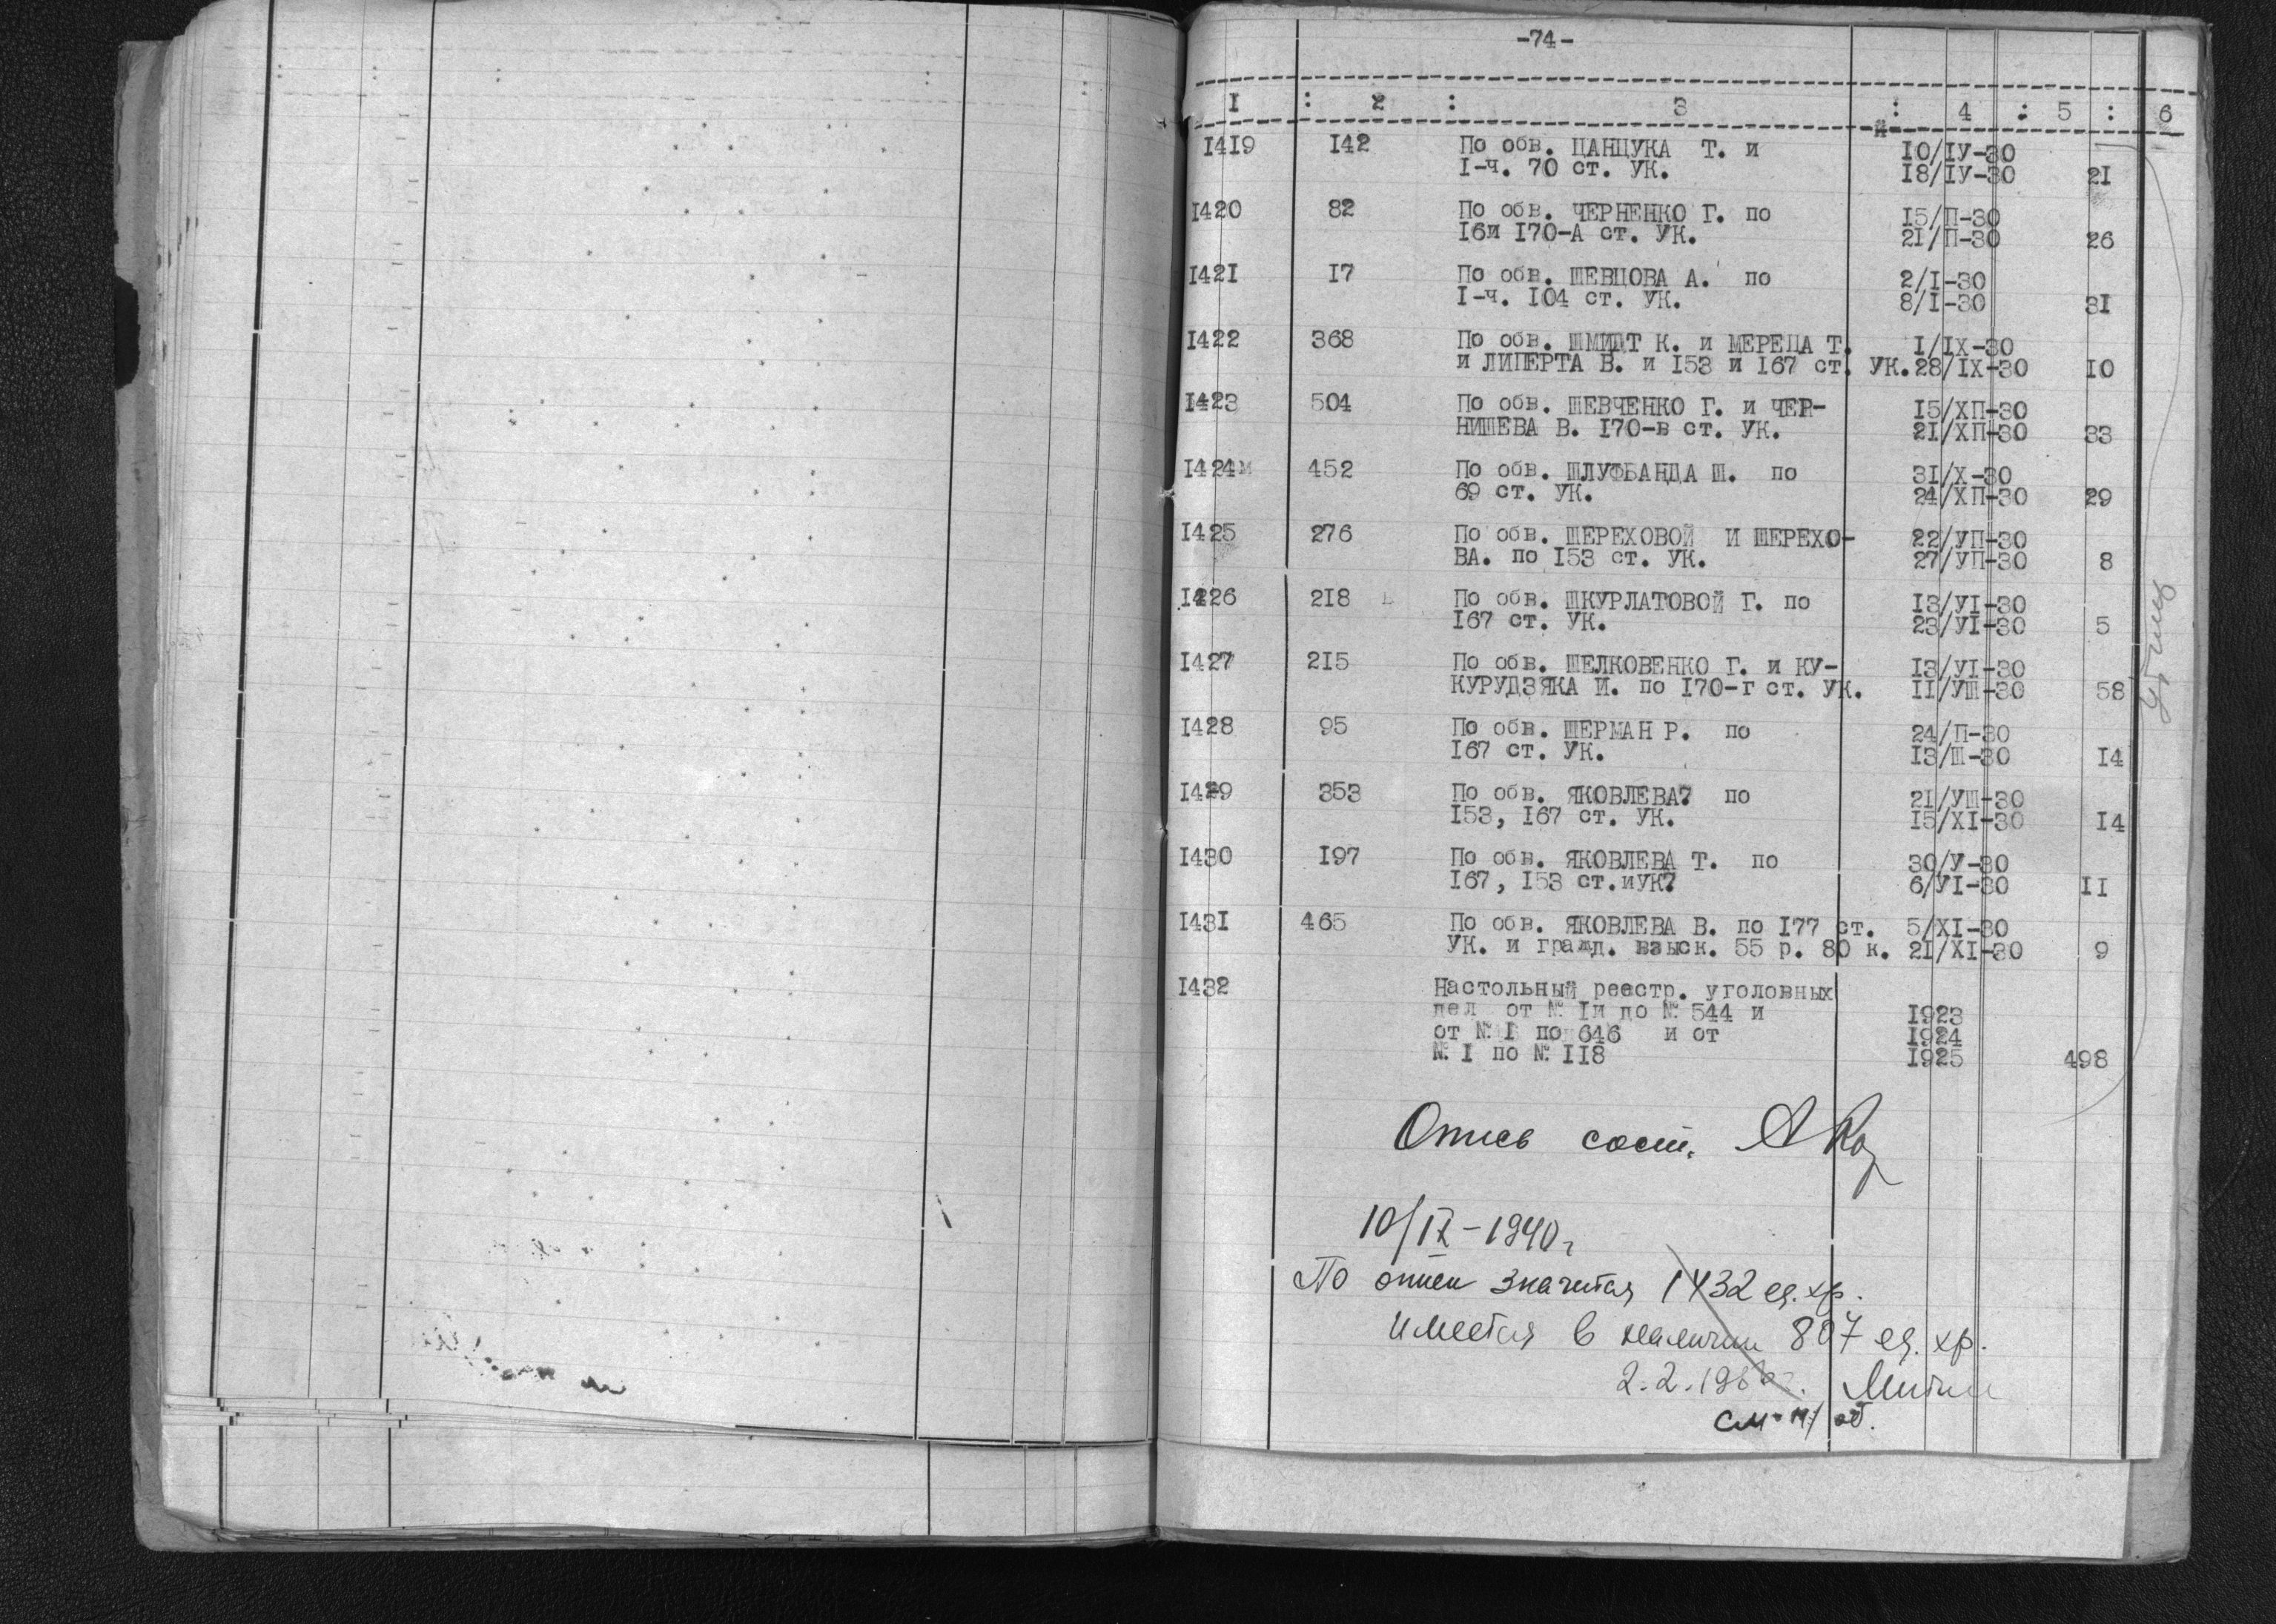 -74-
I : 2 : 3 : 4 : 5 : 6
I4I9 I42 По обв. ЦАНЦУКА Т. и IO/IУ-30
I-ч. 70 ст. УК. I8/IУ-30 2I
I420 82 По обв. ЧЕРНЕНКО Г. по I5/П-30
I6и I70-А ст. УК. 2I/П-30 26
I42I I7 По обв. ШЕВЦОВА А. по 2/I-30
I-ч. I04 ст. УК. 8/I-30 3I
I422 368 По обв. ШМИДТ К. и МЕРЕЦА Т. I/IX-30
и ЛИПЕРТА В. и I53 и I67 ст. УК. 28/IX-30 IO
I423 504 По обв. ШЕВЧЕНКО Г. и ЧЕР- I5/ХП-30
НИШЕВА В. I70-в ст. УК. 2I/ХП-30 33
I424м 452 По обв. ШЛУФБАНДА Ш. по 3I/Х-30
69 ст. УК. 24/ХП-30 29
I425 276 По обв. ШЕРЕХОВОЙ И ШЕРЕХО- 22/УП-30
ВА. по I53 ст. УК. 27/УП-30 8
I426 2I8 По обв. ШКУРЛАТОВОЙ Г. по I3/УI-30
I67 ст. УК. 23/УI-30 5
I427 2I5 По обв. ШЕЛКОВЕНКО Г. и КУ- I3/УI-30
КУРУДЗЯКА И. по I70-г ст. УК. II/УШ-30 58
I428 95 По обв. ШЕРМАН Р. по 24/П-30
I67 ст. УК. I3/Ш-30 I4
I429 353 По обв. ЯКОВЛЕВА? по 2I/УШ-30
I53, I67 ст. УК. I5/XI-30 I4
I430 I97 По обв. ЯКОВЛЕВА Т. по 30/У-30
I67, I53 ст.иУК? 6/УI-30 II
I43I 465 По обв. ЯКОВЛЕВА В. по I77 ст. 5/XI-30
УК. и гражд. взыск. 55 р. 80 к. 2I/XI-30 9
I432 Настольный реестр. уголовных
дел от № Iи до № 544 и I923
от № I по 646 и от I924
№ I по № II8 I925 498
Опись сост.
10/IX-1940 г
По описи значится 1432 ед. хр.
имеется в наличии 807 ед. хр.
см. н/об.